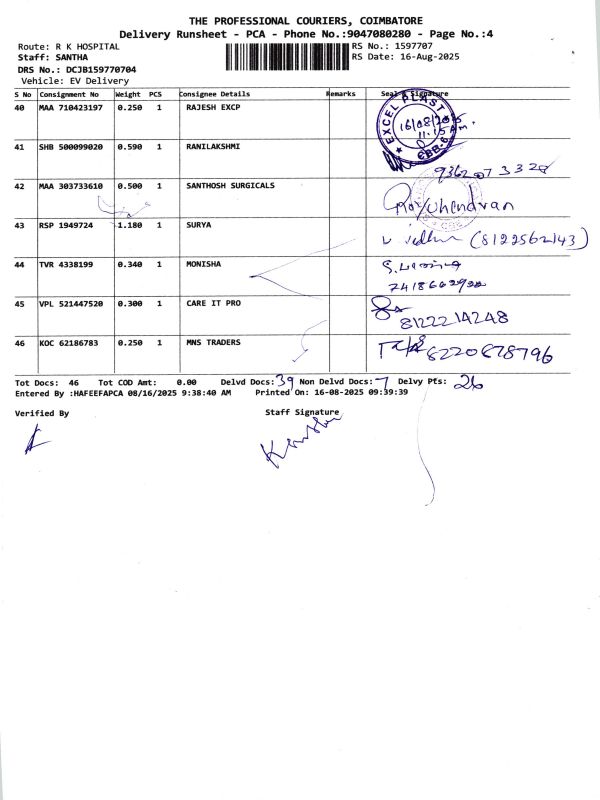 THE PROFESSIONAL COURIERS, COIMBATORE
Delivery Runsheet - PCA - Phone No.:9047080280 - Page No.:4
Route: R K HOSPITAL
RS No.: 1597707
Staff: SANTHA
RS Date: 16-Aug-2025
DRS No.: DCJB159770704
Vehicle: EV Delivery
S No Consignment No Weight PCS Consignee Details Remarks Seal & Signature
40 MAA 710423197 0.250 1 RAJESH EXCP
EXCEL PLAST
16/08/2025
11.15 A.M.
CBB-6
41 SHB 500099020 0.590 1 RANILAKSHMI
42 MAA 303733610 0.500 1 SANTHOSH SURGICALS
43 RSP 1949724 1.180 1 SURYA
(8122562143)
44 TVR 4338199 0.340 1 MONISHA
45 VPL 521447520 0.300 1 CARE IT PRO
8122214248
46 KOC 62186783 0.250 1 MNS TRADERS
8220678796
Tot Docs: 46 Tot COD Amt: 0.00 Delvd Docs: 39 Non Delvd Docs: 7 Delvy Pts: 26
Entered By :HAFEEFAPCA 08/16/2025 9:38:40 AM Printed On: 16-08-2025 09:39:39
Verified By Staff Signature